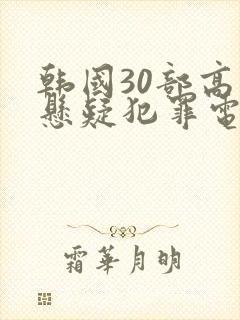 韩国30部高
悬疑犯罪电
霜華月明